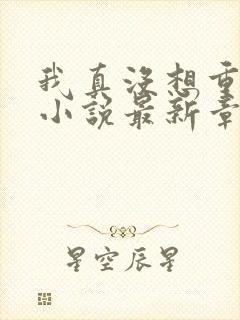 我真没想重
小说最新章
星空辰星